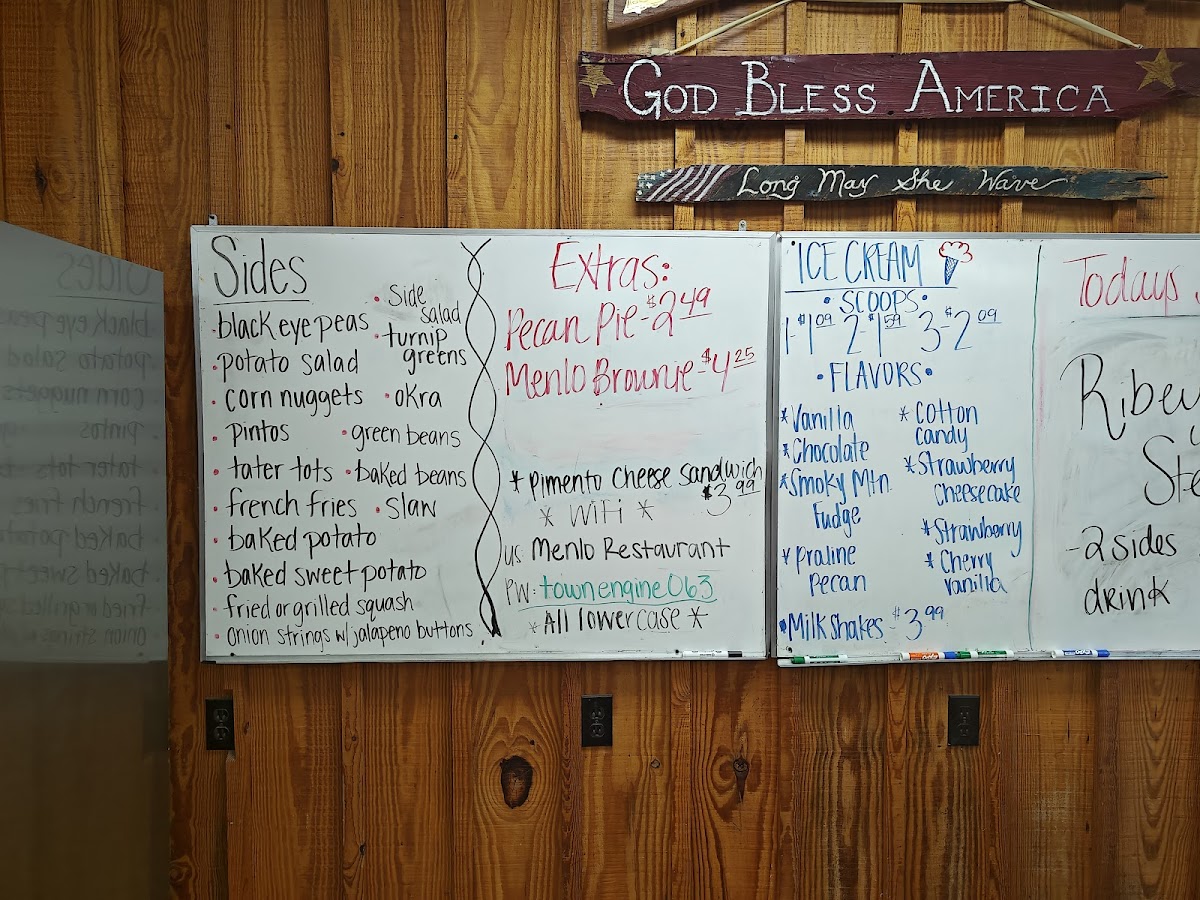 GOD BLESS AMERICA
Long May She Wave
Sides
• black eye peas
• potato salad
• corn nuggets
• pintos
• tater tots
• french fries
• baked potato
• baked sweet potato
• fried or grilled squash
• onion strings w/jalapeno buttons
• side
salad
• turnip
greens
• okra
• green beans
• baked beans
• slaw
Extras:
Pecan Pie-$2.49
Menlo Brownie-$4.25
* Pimento Cheese Sandwich
$3.99
* WiFi *
us: Menlo Restaurant
PW: townengine063
* All lowercase *
ICE CREAM
• SCOOPS •
1-$1.09 2-$1.59 3-$2.09
• FLAVORS •
* Vanilla
* Chocolate
* Smoky Mtn.
Fudge
* Praline
Pecan
* Cotton
candy
* Strawberry
Cheesecake
* Strawberry
* Cherry
vanilla
* Milkshakes-$3.99
Todays
-2 sides
drink